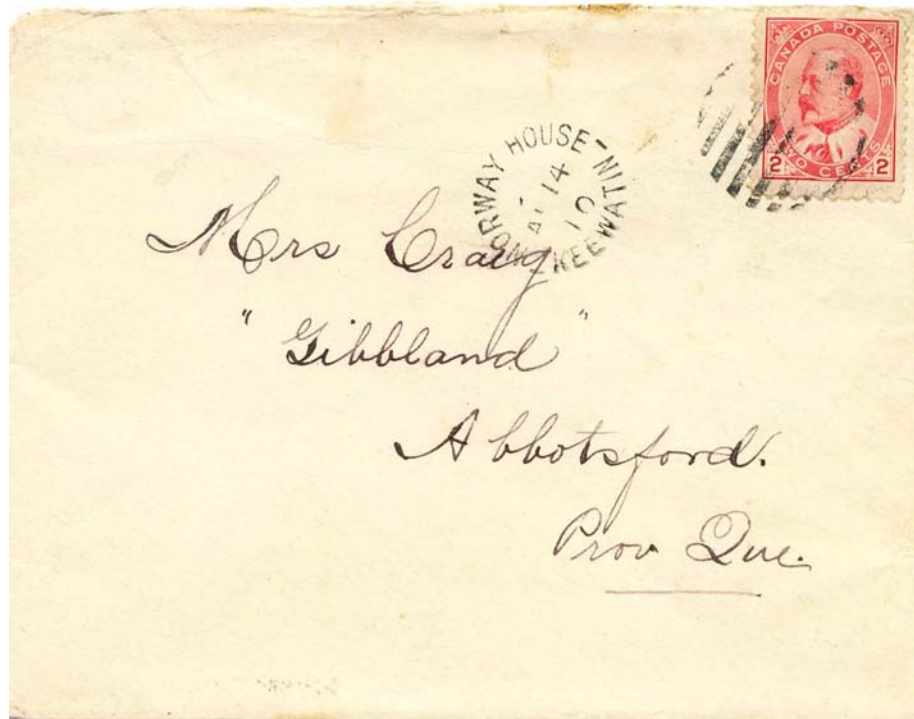 CANADA POSTAGE
2 TWO CENTS 2
NORWAY HOUSE - KEEWATIN
14
10
Mrs Craig
"Gibbland"
Abbotsford.
Prov Que.